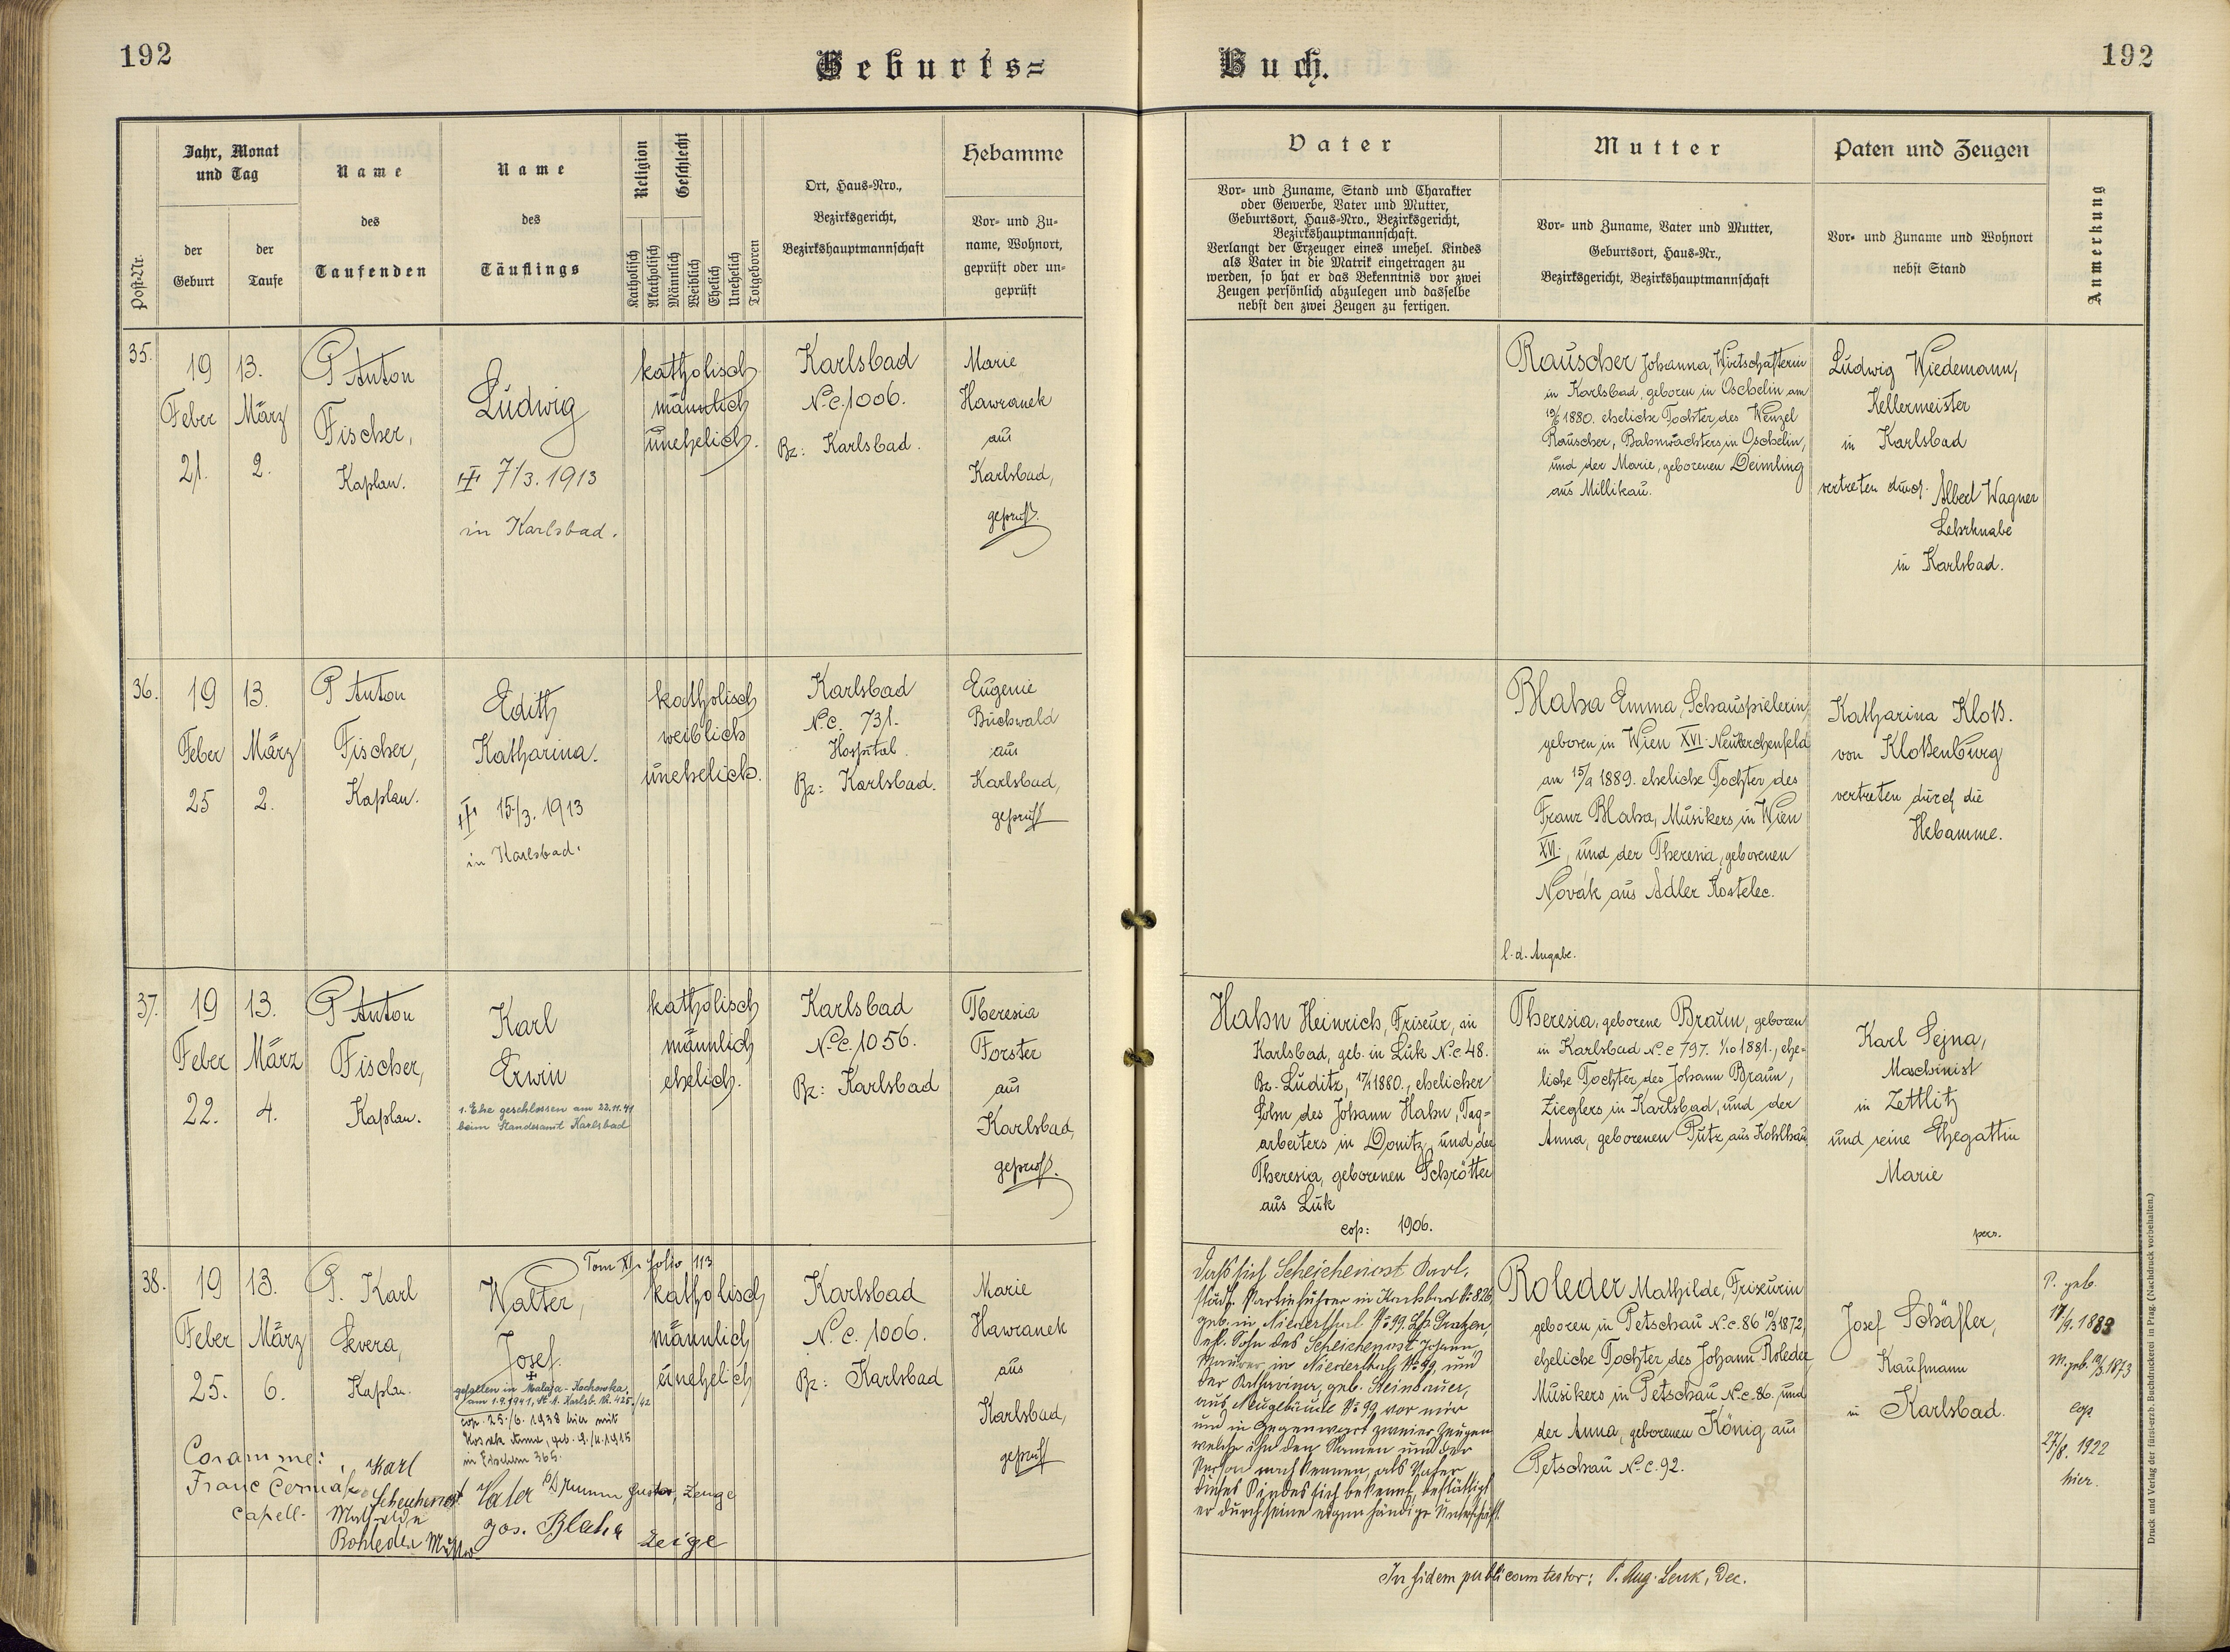 192
Geburts=
Buch.
192
Post-Nr.
Jahr, Monat
und Tag
der
Geburt
der
Taufe
Name
des
Taufenden
Name
des
Täuflings
Religion
Geschlecht
Katholisch
Akatholisch
Männlich
Weiblich
Ehelich
Unehelich
Totgeboren
Ort, Haus-Nro.,
Bezirksgericht,
Bezirkshauptmannschaft
Hebamme
Vor- und Zu-
name, Wohnort,
geprüft oder un-
geprüft
Vater
Vor- und Zuname, Stand und Charakter
oder Gewerbe, Vater und Mutter,
Geburtsort, Haus-Nro., Bezirksgericht,
Bezirkshauptmannschaft.
Verlangt der Erzeuger eines unehel. Kindes
als Vater in die Matrik eingetragen zu
werden, so hat er das Bekenntnis vor zwei
Zeugen persönlich abzulegen und dasselbe
nebst den zwei Zeugen zu fertigen.
Mutter
Vor- und Zuname, Vater und Mutter,
Geburtsort, Haus-Nr.,
Bezirksgericht, Bezirkshauptmannschaft
Paten und Zeugen
Vor- und Zuname und Wohnort
nebst Stand
Anmerkung
35.
19 13.
Feber März
21. 2.
P Anton
Fischer,
Kaplan.
Ludwig
7/3. 1913
in Karlsbad.
katholisch
männlich
unehelich.
Karlsbad
N.c. 1006.
Bz: Karlsbad.
Marie
Hawranek
aus
Karlsbad,
geprüft.
Rauscher Johanna, Wirtschafterin
in Karlsbad, geboren in Oschelin am
19/6 1880. eheliche Tochter des Wenzel
Rauscher, Bahnwächters in Oschelin,
und der Marie, geborenen Deimling
aus Millikau.
Ludwig Wiedemann,
Kellermeister
in Karlsbad
vertreten durch Albert Wagner
Lehrknabe
in Karlsbad.
36.
19 13.
Feber März
25 2.
P Anton
Fischer,
Kaplan.
Edith
Katharina.
15/3. 1913
in Karlsbad.
katholisch
weiblich
unehelich.
Karlsbad
N.c. 731.
Hospital.
Bz: Karlsbad.
Eugenie
Buchwald
aus
Karlsbad,
geprüft
Blaha Emma, Schauspielerin,
geboren in Wien XVI. Neulerchenfeld
am 15/9 1889. eheliche Tochter des
Franz Blaha, Musikers in Wien
XVI., und der Theresia, geborenen
Novák aus Adler Kostelec.
l. d. Angabe.
Katharina Kloß.
von Kloßenburg
vertreten durch die
Hebamme.
37.
19 13.
Feber März
22. 4.
P Anton
Fischer,
Kaplan.
Karl
Erwin
1. Ehe geschlossen am 22.11.41
beim Standesamt Karlsbad
katholisch
männlich
ehelich.
Karlsbad
N.c. 1056.
Bz: Karlsbad
Theresia
Forster
aus
Karlsbad,
geprüft.
Hahn Heinrich, Friseur, in
Karlsbad, geb. in Luk N.c. 48.
Bz. Luditz, 1880., ehelicher
Sohn des Johann Hahn, Tag-
arbeiters in Donitz, und der
Theresia, geborenen Schrötter
aus Luk
cop: 1906.
Theresia, geborene Braun, geboren
in Karlsbad N.c 797. 1/10 1881., ehe-
liche Tochter des Johann Braun,
Zieglers in Karlsbad, und der
Anna, geborenen Putz aus Kohlhau.
Karl Sejna,
Maschinist
in Zettlitz
und seine Ehegattin
Marie
pers.
38.
19 13.
Feber März
25. 6.
P. Karl
Severa,
Kaplan.
Tom XI folio 113
Walter,
Josef.
gefallen in Malaja-Kachowka,
am 1.9.1941, St. A. Karlsb. Nr. 425/42
cop. 25./6. 1938 hier mit
in 365.
katholisch
männlich
unehelich
Karlsbad
N.c. 1006.
Bz: Karlsbad
Marie
Hawranek
aus
Karlsbad,
geprüft
Daß sich Scheichenost Karl,
städt. Partieführer in Karlsbad No 826,
geb. in Niederthal No 99. Bz. Gratzen,
ehl. Sohn des Scheichenost Johann,
Maurer in Niederthal No 99, und
der Katharina, geb. Steinbauer,
aus Neugebäude No 99 vor mir
und in Gegenwart zweier Zeugen
welche ihn dem Namen und der
Person nach kennen, als Vater
dieses Kindes sich bekennt, bestättigt
er durch seine eigenhändige Unterschrift.
Roleder Mathilde, Friseurin
geboren in Petschau N.c. 86 10/3 1872,
eheliche Tochter des Johann Roleder
Musikers in Petschau N.c. 86. und
der Anna, geborenen König aus
Petschau N.c. 92.
Josef Schäfler,
Kaufmann
in Karlsbad.
P. geb.
17/9. 1883
M. geb. 10/3. 1873
cop
27/8. 1922
hier.
Coram me:
Franc Čermák
Capell.
Karl
Scheichenost Vater
Mathilde
Rohleder Mutter
Gustav, Zeuge
Jos. Blaha Zeuge
In fidem publicam testor: P. Aug. Lenk, Dec.
Druck und Verlag der fürst-erzb. Buchdruckerei in Prag. (Nachdruck vorbehalten.)